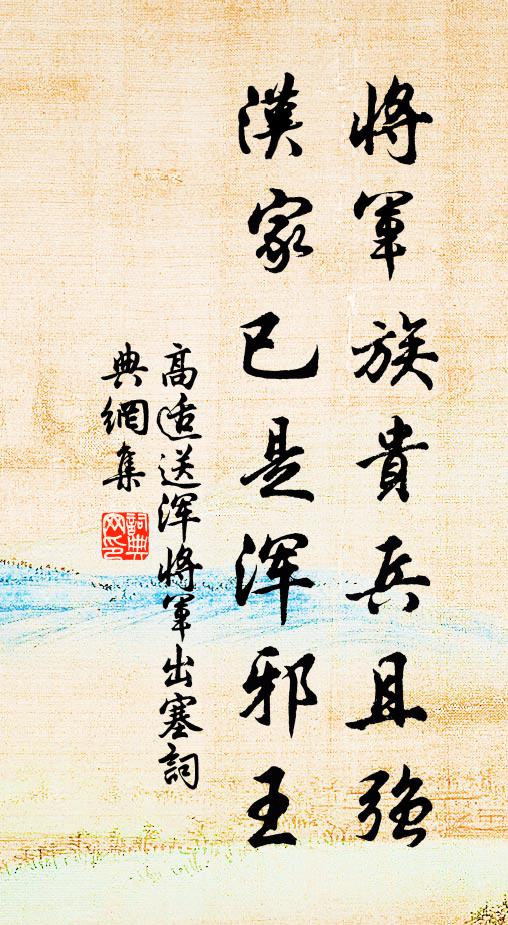 將軍族貴兵且強
漢家已是渾邪王
高適送渾將軍出塞詞
典網集
詞典
网印